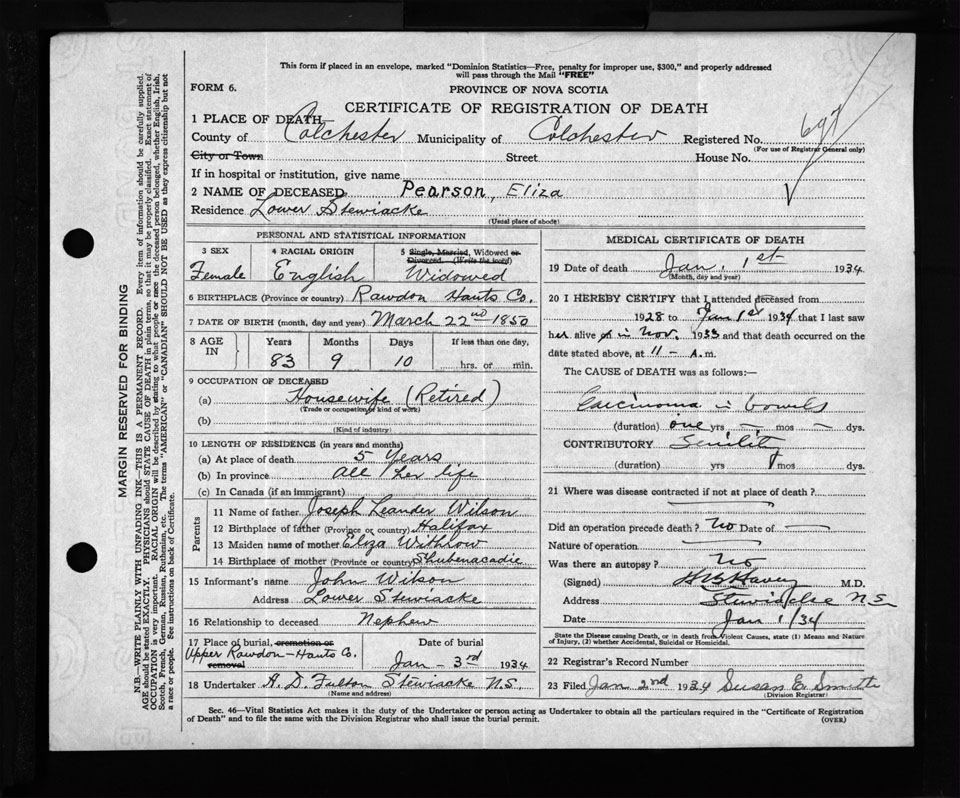 This form if placed in an envelope, marked "Dominion Statistics—Free, penalty for improper use, $300," and properly addressed
will pass through the Mail "FREE"
FORM 6.
PROVINCE OF NOVA SCOTIA
CERTIFICATE OF REGISTRATION OF DEATH
1 PLACE OF DEATH
County of Colchester Municipality of Colchester Registered No.
(For use of Registrar General only)
City or Town Street House No.
If in hospital or institution, give name
2 NAME OF DECEASED Pearson, Eliza
Residence Lower Stewiacke
(Usual place of abode)
MARGIN RESERVED FOR BINDING
N.B.—WRITE PLAINLY WITH UNFADING INK—THIS IS A PERMANENT RECORD. Every item of information should be carefully supplied.
AGE should be stated EXACTLY. PHYSICIANS should STATE CAUSE OF DEATH in plain terms, so that it may be properly classified. Exact statement of
OCCUPATION is very important. RACIAL ORIGIN will be described by stating to what people or race the deceased person belonged, whether English, Irish,
Scotch, French, German, Russian, Ruthenian, etc. The terms "AMERICAN" or "CANADIAN" SHOULD NOT BE USED as they express citizenship but not
a race or people. See instructions on back of Certificate.
PERSONAL AND STATISTICAL INFORMATION
3 SEX 4 RACIAL ORIGIN 5 Single, Married, Widowed or
Divorced. (Write the word)
Female English Widowed
6 BIRTHPLACE (Province or country) Rawdon Hants Co.
7 DATE OF BIRTH (month, day and year) March 22nd 1850
8 AGE IN Years Months Days If less than one day,
83 9 10 hrs. or min.
9 OCCUPATION OF DECEASED
(a) Housewife (Retired)
(Trade or occupation or kind of work)
(b)
(Kind of industry)
10 LENGTH OF RESIDENCE (in years and months)
(a) At place of death 5 Years
(b) In province all her life
(c) In Canada (if an Immigrant)
Parents
11 Name of father Joseph Leander Wilson
12 Birthplace of father (Province or country) Halifax
13 Maiden name of mother Eliza Withrow
14 Birthplace of mother (Province or country) Shubenacadie
15 Informant's name John Wilson
Address Lower Stewiacke
16 Relationship to deceased Nephew
17 Place of burial, cremation or Date of burial
Upper Rawdon—Hants Co.
removal Jan - 3rd 1934
18 Undertaker A. D. Fulton Stewiacke N.S.
(Name and address)
MEDICAL CERTIFICATE OF DEATH
19 Date of death Jan. 1st 1934
(Month, day and year)
20 I HEREBY CERTIFY that I attended deceased from
1928 to Jan 1st 1934 that I last saw
her alive in Nov. 1933 and that death occurred on the
date stated above, at 11 - A.m.
The CAUSE of DEATH was as follows:—
Carcinoma in bowels
(duration) one yrs — mos — dys.
CONTRIBUTORY Senility
(duration) yrs mos dys.
21 Where was disease contracted if not at place of death?
Did an operation precede death? No Date of —
Nature of operation —
Was there an autopsy? No
(Signed) M.D.
Address Stewiacke N.S
Date Jan 1/34
State the Disease causing Death, or in death from Violent Causes, state (1) Means and Nature
of Injury, (2) whether Accidental, Suicidal or Homicidal.
22 Registrar's Record Number
23 Filed Jan 2nd 1934 Susan E. Smith
(Division Registrar)
Sec. 46—Vital Statistics Act makes it the duty of the Undertaker or person acting as Undertaker to obtain all the particulars required in the "Certificate of Registration
of Death" and to file the same with the Division Registrar who shall issue the burial permit.
(OVER)